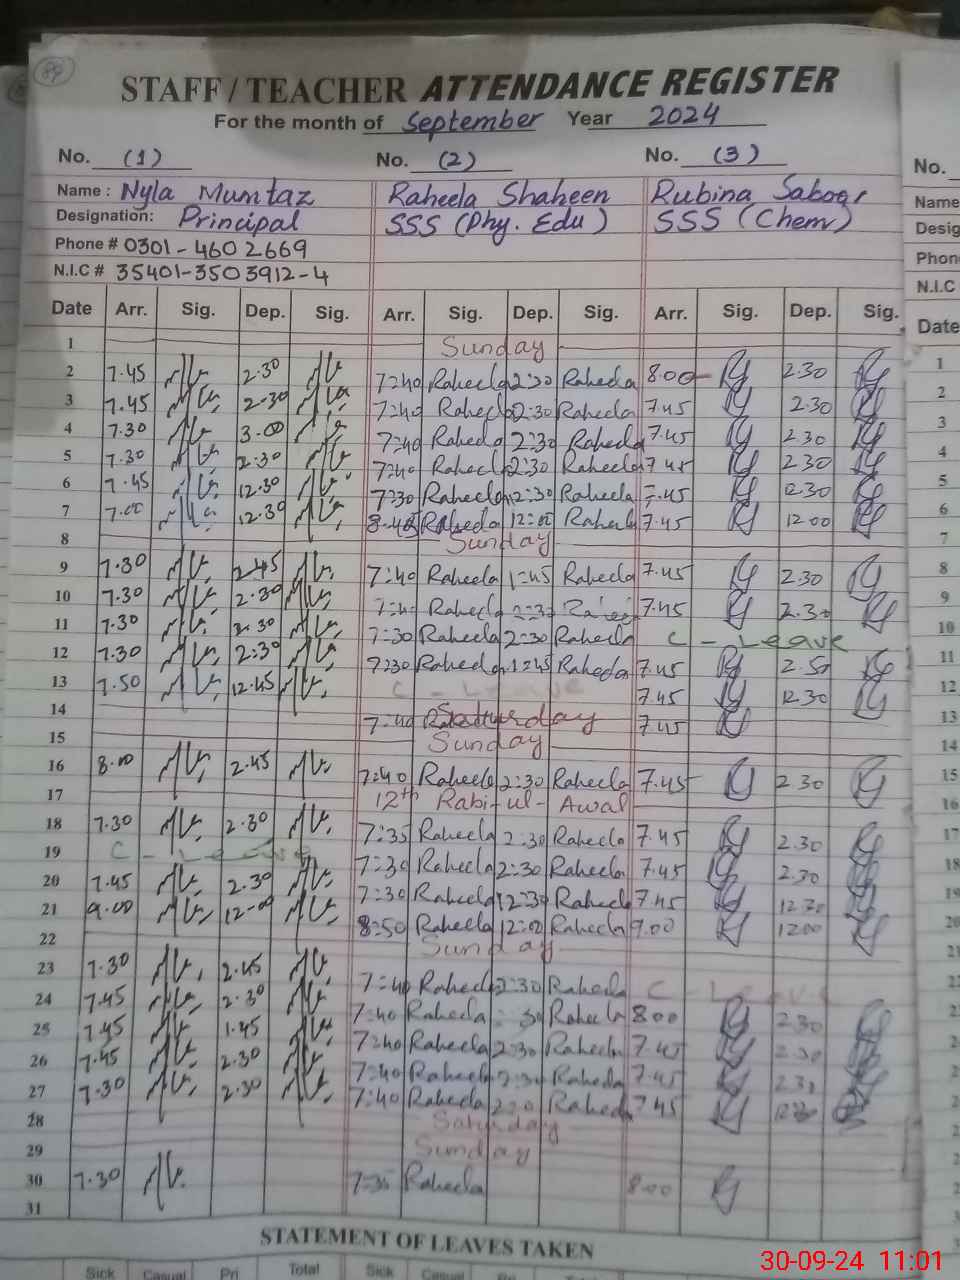 99
STAFF / TEACHER ATTENDANCE REGISTER
For the month of September Year 2024
No. (1) No. (2) No. (3) No.
Name : Nyla Mumtaz Raheela Shaheen Rubina Saboor Name
Designation: Principal SSS (Phy. Edu) SSS (Chem) Desig
Phone # 0301-4602669 Phon
N.I.C # 35401-3503912-4 N.I.C
Date Arr. Sig. Dep. Sig. Arr. Sig. Dep. Sig. Arr. Sig. Dep. Sig. Date
1 Sunday 1
2 7.45 2.30 7:40 Raheela 2:30 Raheela 8.00 2.30 2
3 7.45 2.30 7:40 Raheela 2:30 Raheela 7.45 2.30 3
4 7.30 3.00 7:40 Raheela 2:30 Raheela 7.45 2.30 4
5 7.30 2.30 7:40 Raheela 2:30 Raheela 7.45 2.30 5
6 7.45 12.30 7:30 Raheela 12:30 Raheela 7.45 12.30 6
7 7.00 12.30 8.45 Raheela 12:00 Raheela 7.45 12 00 7
8 Sunday 8
9 7.30 2.45 7:40 Raheela 1:45 Raheela 7.45 2.30 9
10 7.30 2.30 7:40 Raheela 2:30 7.45 2.30 10
11 7.30 2.30 7:30 Raheela 2:30 Raheela C - Leave 11
12 7.30 2:30 7:30 Raheela 1:45 Raheela 7.45 2.50 12
13 7.50 12.45 C - Leave 7.45 12.30 13
14 7:40 Saturday 7.45 14
15 Sunday 15
16 8.00 2.45 7:40 Raheela 2:30 Raheela 7.45 2 30 16
17 12th Rabi-ul-Awal 17
18 7.30 2.30 7:35 Raheela 2:30 Raheela 7.45 2.30 18
19 C - Leave 7:30 Raheela 2:30 Raheela 7.45 2.30 19
20 7.45 2.30 7:30 Raheela 12:30 Raheela 7.45 12 30 20
21 9.00 12-00 8:50 Raheela 12:00 Raheela 9.00 1200 21
22 Sunday
23 7.30 2.45 7:40 Raheela 2:30 Raheela C - Leave
24 7.45 2.30 7:40 Raheela 30 Raheela 8 00 2.30
25 7.45 1.45 7:40 Raheela 2:30 Raheela 7.45 2.30
26 7.45 2.30 7:40 Raheela 2:30 Raheela 7.45 2.30
27 7.30 2.30 7:40 Raheela Raheela 7.45 1230
28 Saturday
29 Sunday
30 7.30 7:35 Raheela 8.00
31
STATEMENT OF LEAVES TAKEN
Sick Casual Pri Total Sick Casual
30-09-24 11:01